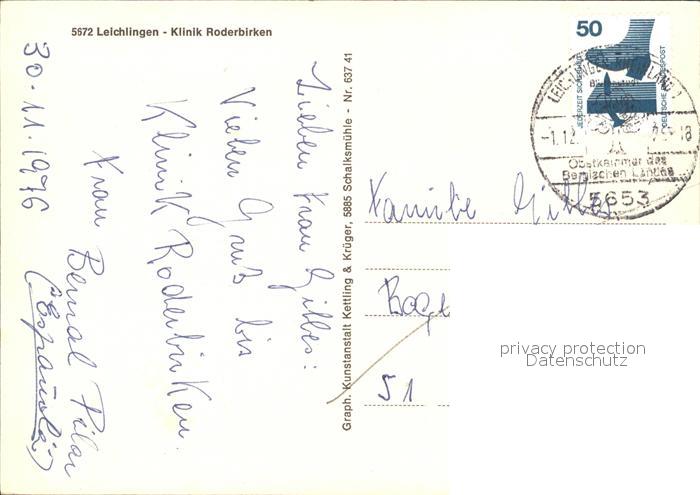 5672 Leichlingen - Klinik Roderbirken
30.11.1976
Lieben Frau Gilles:
Vielen Gruß bis
Klinik Roderbirken.
Frau Bernal Pilar
(Española)
Graph. Kunstanstalt Kettling & Krüger, 5885 Schalksmühle - Nr. 637 41
50
JEDERZEIT SICHERHEIT
DEUTSCHE BUNDESPOST
-1.12. -18
Obstkammer des
Bergischen Landes
5653
Familie Gilles
51
privacy protection
Datenschutz